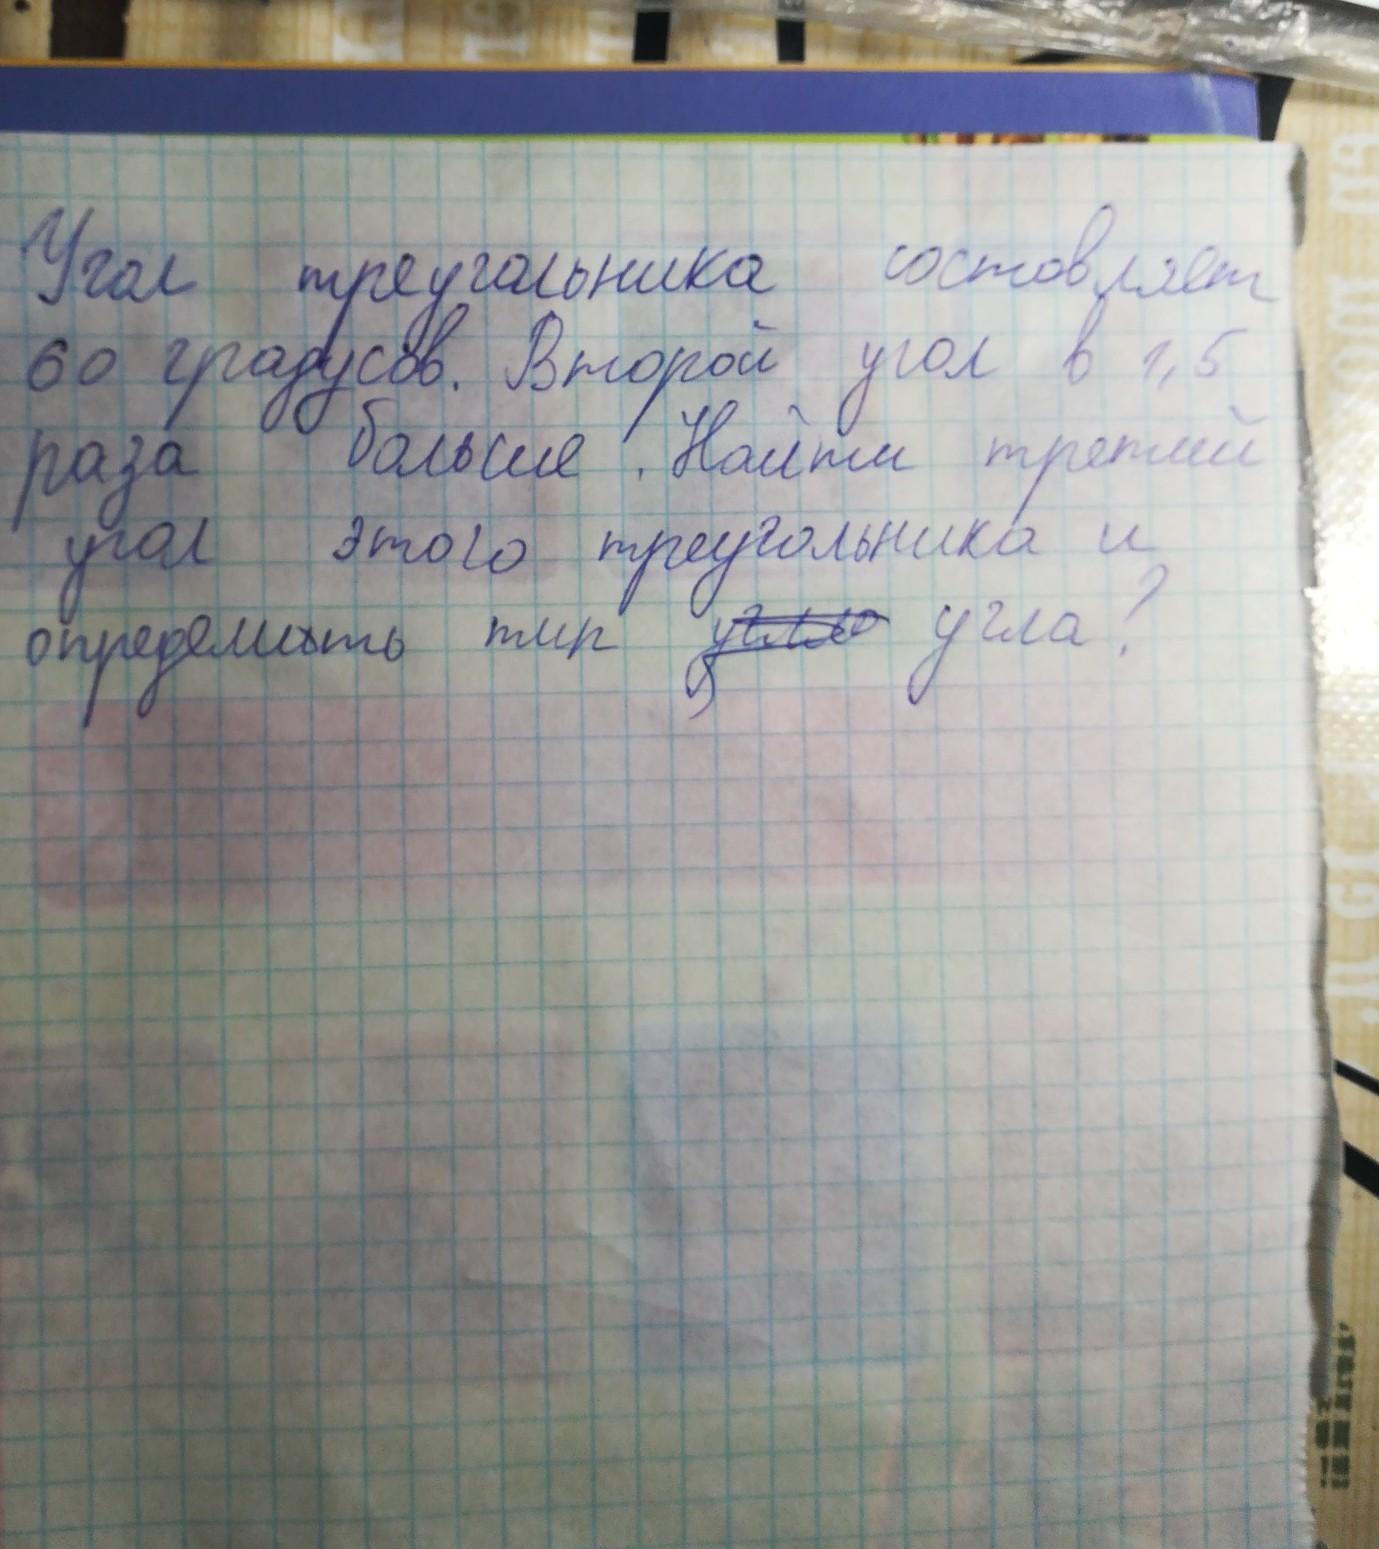 Угол треугольника составляет
60 градусов. Второй угол в 1,5
раза больше. Найти третий
угол этого треугольника и
определить тип угла?